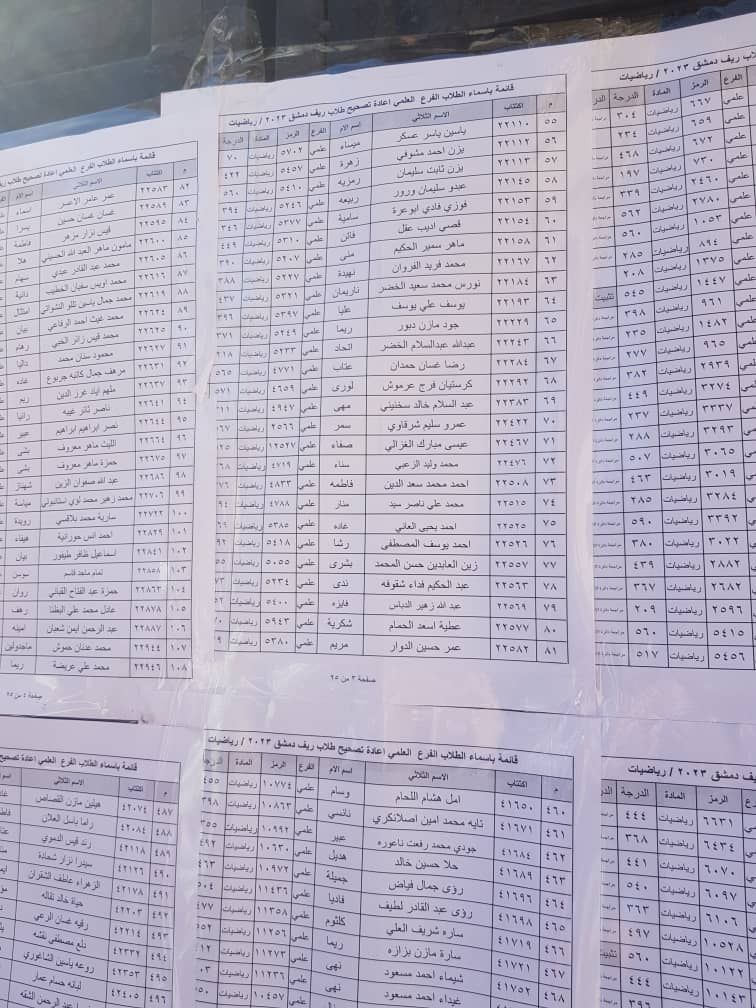 لاب ريف دمشق ٢٠٢٣ / رياضيات
الفرع الرمز المادة الدرجة
علمي ٦٦٧ رياضيات ٣٠٤
علمي ٦٥٩ رياضيات ٢٣٤
علمي ٦٧٢ رياضيات ٤٦٨
علمي ٧٣٠ رياضيات ١٩٧
علمي ٢٤٦٠ رياضيات ٣٣٩
علمي ٢٧٨٠ رياضيات ٥٦٢
علمي ١٠٥٣ رياضيات ٥٦٠
٨٩٤ رياضيات ٢٨٥
١٣٧٥ رياضيات ٢٠٨
١٤٤٧ رياضيات ٥٤٥
٩٦١ رياضيات ٣٩٨
١٤٨٢ رياضيات ٢٣٥
٩٦٥ رياضيات ٢٧٧
٢٩٣٩ رياضيات ٣٨٢
٣٢٧٤ رياضيات ٤٤٩
٣٣٣٧ رياضيات ٢٣٧
٣٢٩٣ رياضيات ٢٨٨
٣٠٦٥ رياضيات ٥٠٧
٣٠١٩ رياضيات ٤٦٣
٣٢٨٤ رياضيات ٢٨٥
٣٣٩٢ رياضيات ٥٩٠
٣٠٢٢ رياضيات ٣٨٠
٢٨٨٢ رياضيات ٤٣٩
٢٦٨٢ رياضيات ٣٦٧
٢٥٩٦ رياضيات ٢٠٩
٥٤١٥ رياضيات ٥٦٠
٥٤٥٦ رياضيات ٥١٧
قائمة باسماء الطلاب الفرع العلمي اعادة تصحيح طلاب ريف دمشق ٢٠٢٣ / رياضيات
م اكتتاب الاسم الثلاثي اسم الام الفرع الرمز المادة الدرجة
٥٥ ٢٢١١٠ ياسين ياسر عسكر ميساء علمي ٥٧٠٢ رياضيات ٧٠
٥٦ ٢٢١١٢ يزن احمد مشوقي زهرة علمي ٥٤٥٧ رياضيات ٤٢٢
٥٧ ٢٢١١٣ يزن ثابت سليمان رمزيه علمي ٥٤١٠ رياضيات ٥٦٠
٥٨ ٢٢١٤٥ عبدو سليمان ورور ربيعه علمي ٥٢٤٦ رياضيات ٣٩٤
٥٩ ٢٢١٥٣ فوزي فادي ابوعرة سامية علمي ٥٣٧٧ رياضيات ٣٤٦
٦٠ ٢٢١٥٤ قصي اديب عقل فاتن علمي ٥٣١٠ رياضيات ٤٤٩
٦١ ٢٢١٥٨ ماهر سمير الحكيم منى علمي ٥٢٠٧ رياضيات ٣٩٠
٦٢ ٢٢١٦٧ محمد فريد الفروان نهيدة علمي ٥٢٢٧ رياضيات ٣٨٨
٦٣ ٢٢١٨٤ نورس محمد سعيد الخضر ناريمان علمي ٥٣٢١ رياضيات ٤٣٧
٦٤ ٢٢١٩٣ يوسف علي يوسف عليا علمي ٥٣٩٧ رياضيات ٣٩٦
٦٥ ٢٢٢٢٩ جود مازن دبور ريما علمي ٥٢٤٩ رياضيات ٣٧١
٦٦ ٢٢٢٤٣ عبدالله عبدالسلام الخضر اتحاد علمي ٥٢٣٣ رياضيات
٦٧ ٢٢٢٨٤ رضا غسان حمدان عتاب علمي ٤٧٧١ رياضيات
٦٨ ٢٢٢٩٢ كرستيان فرج عرموش لورى علمي ٤٦٥٩ رياضيات
٦٩ ٢٢٣٨٣ عبد السلام خالد سخنيني مهى علمي ٤٩٤٧ رياضيات
٧٠ ٢٢٤٢٢ عمرو سليم شرقاوي سمر علمي ٢٥٦٦ رياضيات
٧١ ٢٢٤٦٧ عيسى مبارك الغزالي صفاء علمي ١٢٥٢٧ رياضيات
٧٢ ٢٢٤٧٦ محمد وليد الزعبي سناء علمي ٤٧١٩ رياضيات
٧٣ ٢٢٥٠٨ احمد محمد سعد الدين فاطمه علمي ٤٨٣٣ رياضيات
٧٤ ٢٢٥١٥ محمد علي ناصر سيد منار علمي ٤٧٨٨ رياضيات
٧٥ ٢٢٥٢٥ احمد يحيى العاني غاده علمي ٥٣٨٥ رياضيات
٧٦ ٢٢٥٢٦ احمد يوسف المصطفى رشا علمي ٥٤١٨ رياضيات
٧٧ ٢٢٥٥٧ زين العابدين حسن المحمد بشرى علمي ٥٠٥٥ رياضيات
٧٨ ٢٢٥٦٣ عبد الحكيم فداء شقوفه ندى علمي ٥٢٣٤ رياضيات
٧٩ ٢٢٥٦٩ عبد الله زهير الدباس فايزه علمي ٥٤٠٠ رياضيات
٨٠ ٢٢٥٧٧ عطية اسعد الحمام شكرية علمي ٥٩٤٣ رياضيات
٨١ ٢٢٥٨٢ عمر حسين الدوار مريم علمي ٥٣٨٠ رياضيات
صفحة ٣ من ٢٥
قائمة باسماء الطلاب الفرع العلمي اعادة تصحيح طلاب ريف
م اكتتاب الاسم الثلاثي اسم الام
٨٢ ٢٢٥٨٣ عمر عامر الاعسر اسماء
٨٣ ٢٢٥٨٩ غسان غسان حسين يسرا
٨٤ ٢٢٥٩٥ قيس نزار مرهر فاطمة
٨٥ ٢٢٦٠٠ مامون ماهر العبد الله الحسيني هلا
٨٦ ٢٢٦٠٥ محمد عبد القادر عبدي سهام
٨٧ ٢٢٦١٦ محمد اويس سفيان الخطيب دانية
٨٨ ٢٢٦١٩ محمد جمال ياسين تللو الشواتي امتثال
٨٩ ٢٢٦٢٤ محمد غيث احمد الرفاعي بيان
٩٠ ٢٢٦٢٥ محمد قيس زائر الحي رهام
٩١ ٢٢٦٢٧ محمود سنان محمد داليا
٩٢ ٢٢٦٣١ مرهف جمال كاتبه جربوع غاده
٩٣ ٢٢٦٣٧ ملهم اياد غرز الدين ريم
٩٤ ٢٢٦٤١ ناصر ثائر غيبه رانيا
٩٥ ٢٢٦٤٤ نصر ابراهيم ابراهيم عبير
٩٦ ٢٢٦٦٤ الليث ماهر معروف بشى
٩٧ ٢٢٦٧٥ حمزة ماهر معروف بشى
٩٨ ٢٢٦٨٦ عبد الله صفوان الزين شهيناز
٩٩ ٢٢٧٠٦ محمد زهير محمد لوي استانبولي مياسة
١٠٠ ٢٢٧٢٢ سارية محمد بلاقسي رويدة
١٠١ ٢٢٨٢٩ احمد انس حورانية هيفاء
١٠٢ ٢٢٨٤١ اسماعيل ظافر طيفور بيان
١٠٣ ٢٢٨٥٨ تمام ماجد قاسم سوسن
١٠٤ ٢٢٨٦٣ حمزة عبد الفتاح القباني روان
١٠٥ ٢٢٨٧٨ عادل محمد علي البظا رهف
١٠٦ ٢٢٨٨٧ عبد الرحمن ايمن شعبان امينه
١٠٧ ٢٢٩٤٤ محمد عدنان حموش ماجدولين
١٠٨ ٢٢٩٤٦ محمد علي عريضة ريما
صفحة ٤ من ٢٥
ريف دمشق ٢٠٢٣ / رياضيات
الرمز المادة الدرجة
٦٦٣١ رياضيات ٤٤٤
٦٤٣٤ رياضيات ٣٦٨
٦٠٧٠ رياضيات ٤٤١
٦٠٩٧ رياضيات ٥٤٠
٦١٠٦ رياضيات ٣٦٣
١٠٥٢٨ رياضيات ٤٩٧
١٠١٢٢ رياضيات ٥٦٠
رياضيات ٤٤٤
قائمة باسماء الطلاب الفرع العلمي اعادة تصحيح طلاب ريف دمشق ٢٠٢٣ / رياضيات
م اكتتاب الاسم الثلاثي اسم الام الفرع الرمز المادة الدرجة
٤٦٠ ٤١٦٥٠ امل هشام اللحام وسام علمي ١٠٧٧٤ رياضيات
٤٦١ ٤١٦٧١ تايه محمد امين اصلانكري نانسي علمي ١٠٨٦٣ رياضيات
٤٦٢ ٤١٦٨٤ جودي محمد رفعت ناعوره عبير علمي ١٠٩٩٢ رياضيات
٤٦٣ ٤١٦٨٩ حلا حسين خالد هديل علمي ١٠٦٣٠ رياضيات
٤٦٤ ٤١٦٩٦ رؤى جمال فياض جميلة علمي ١٠٩٧٢ رياضيات
٤٦٥ ٤١٦٩٨ رؤى عبد القادر لطيف فاديا علمي ١١٤٣٦ رياضيات
٤٦٦ ٤١٧١٩ ساره شريف العلي كلثوم علمي ١١٣٥٨ رياضيات
٤٦٧ ٤١٧٢١ سارة مازن برازه ريما علمي ١١٢٥٦ رياضيات
٤٦٨ ٤١٧٥٢ شيماء احمد مسعود نهى علمي ١١٢٧٣ رياضيات
غيداء احمد مسعود نهى علمي ١١٢٣٦ رياضيات
علمي ١٠٤٥٧ رياضيات
قائمة باسماء الطلاب الفرع العلمي اعادة تصحيح
م اكتتاب الاسم الثلاثي
٤٨٧ ٤٢٠٧٤ هيلين مازن القصاص
٤٨٨ ٤٢٠٨٤ راما باسل العلان
٤٨٩ ٤٢١١٨ رند قيس الدموي
٤٩٠ ٤٢١٢٦ سيدرا نزار شحادة
٤٩١ ٤٢١٧٨ الزهراء عاطف الشقران
٤٩٢ ٤٢٢٠٣ حياة خالد نقاله
٤٩٣ ٤٢٢١٤ رقيه غسان الرعي
٤٩٤ ٤٢٣٣٢ دلع مصطفى نقشه
٤٩٥ ٤٢٣٥٣ روعه ياسين الشاغوري
٤٩٦ ٤٢٤٠٥ لبانه حسام عمار